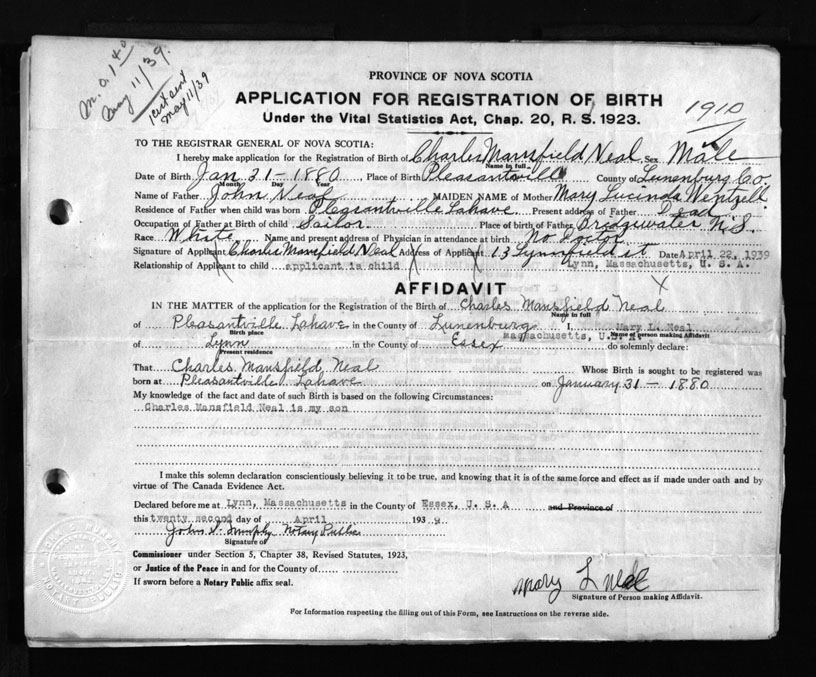 M.O. 1 40
May 11/39.
May 11/39
PROVINCE OF NOVA SCOTIA
APPLICATION FOR REGISTRATION OF BIRTH
Under the Vital Statistics Act, Chap. 20, R. S. 1923.
1910
TO THE REGISTRAR GENERAL OF NOVA SCOTIA:
I hereby make application for the Registration of Birth of Charles Mansfield Neal Sex Male
Name in full
Date of Birth Jan 31 - 1880 Place of Birth Pleasantville County of Lunenburg Co.
Month Day Year
Name of Father John Neal MAIDEN NAME of Mother Mary Lucinda Wentzell
Residence of Father when child was born Pleasantville Lahave Present address of Father Dead
Occupation of Father at Birth of child Sailor. Place of birth of Father Bridgewater N.S.
Race White Name and present address of Physician in attendance at birth No Doctor
Signature of Applicant Charles Mansfield Neal Address of Applicant 13 Lynnfield st Date April 22, 1939
Relationship of Applicant to child applicant is child Lynn, Massachusetts, U. S. A.
AFFIDAVIT
IN THE MATTER of the application for the Registration of the Birth of Charles Mansfield Neal
Name in full
of Pleasantville Lahave in the County of Lunenburg I, Mary L. Neal
Birth place Name of person making Affidavit
of Lynn in the County of Essex Massachusetts, U.S. A. do solemnly declare:
Present residence
That Charles Mansfield Neal Whose Birth is sought to be registered was
born at Pleasantville Lahave on January 31 - 1880
My knowledge of the fact and date of Birth is based on the following Circumstances:
Charles Mansfield Neal is my son
I make this solemn declaration conscientiously believing it to be true, and knowing that it is of the same force and effect as if made under oath and by
virtue of The Canada Evidence Act.
Declared before me at Lynn, Massachusetts in the County of Essex, U. S. A and Province of
this twenty second day of April 1939
John Murphy Notary Public
Signature of
Commissioner under Section 5, Chapter 38, Revised Statutes, 1923,
or Justice of the Peace in and for the County of
If sworn before a Notary Public affix seal.
Mary L Neal
Signature of Person making Affidavit.
For Information respecting the filling out of this Form, see Instructions on the reverse side.